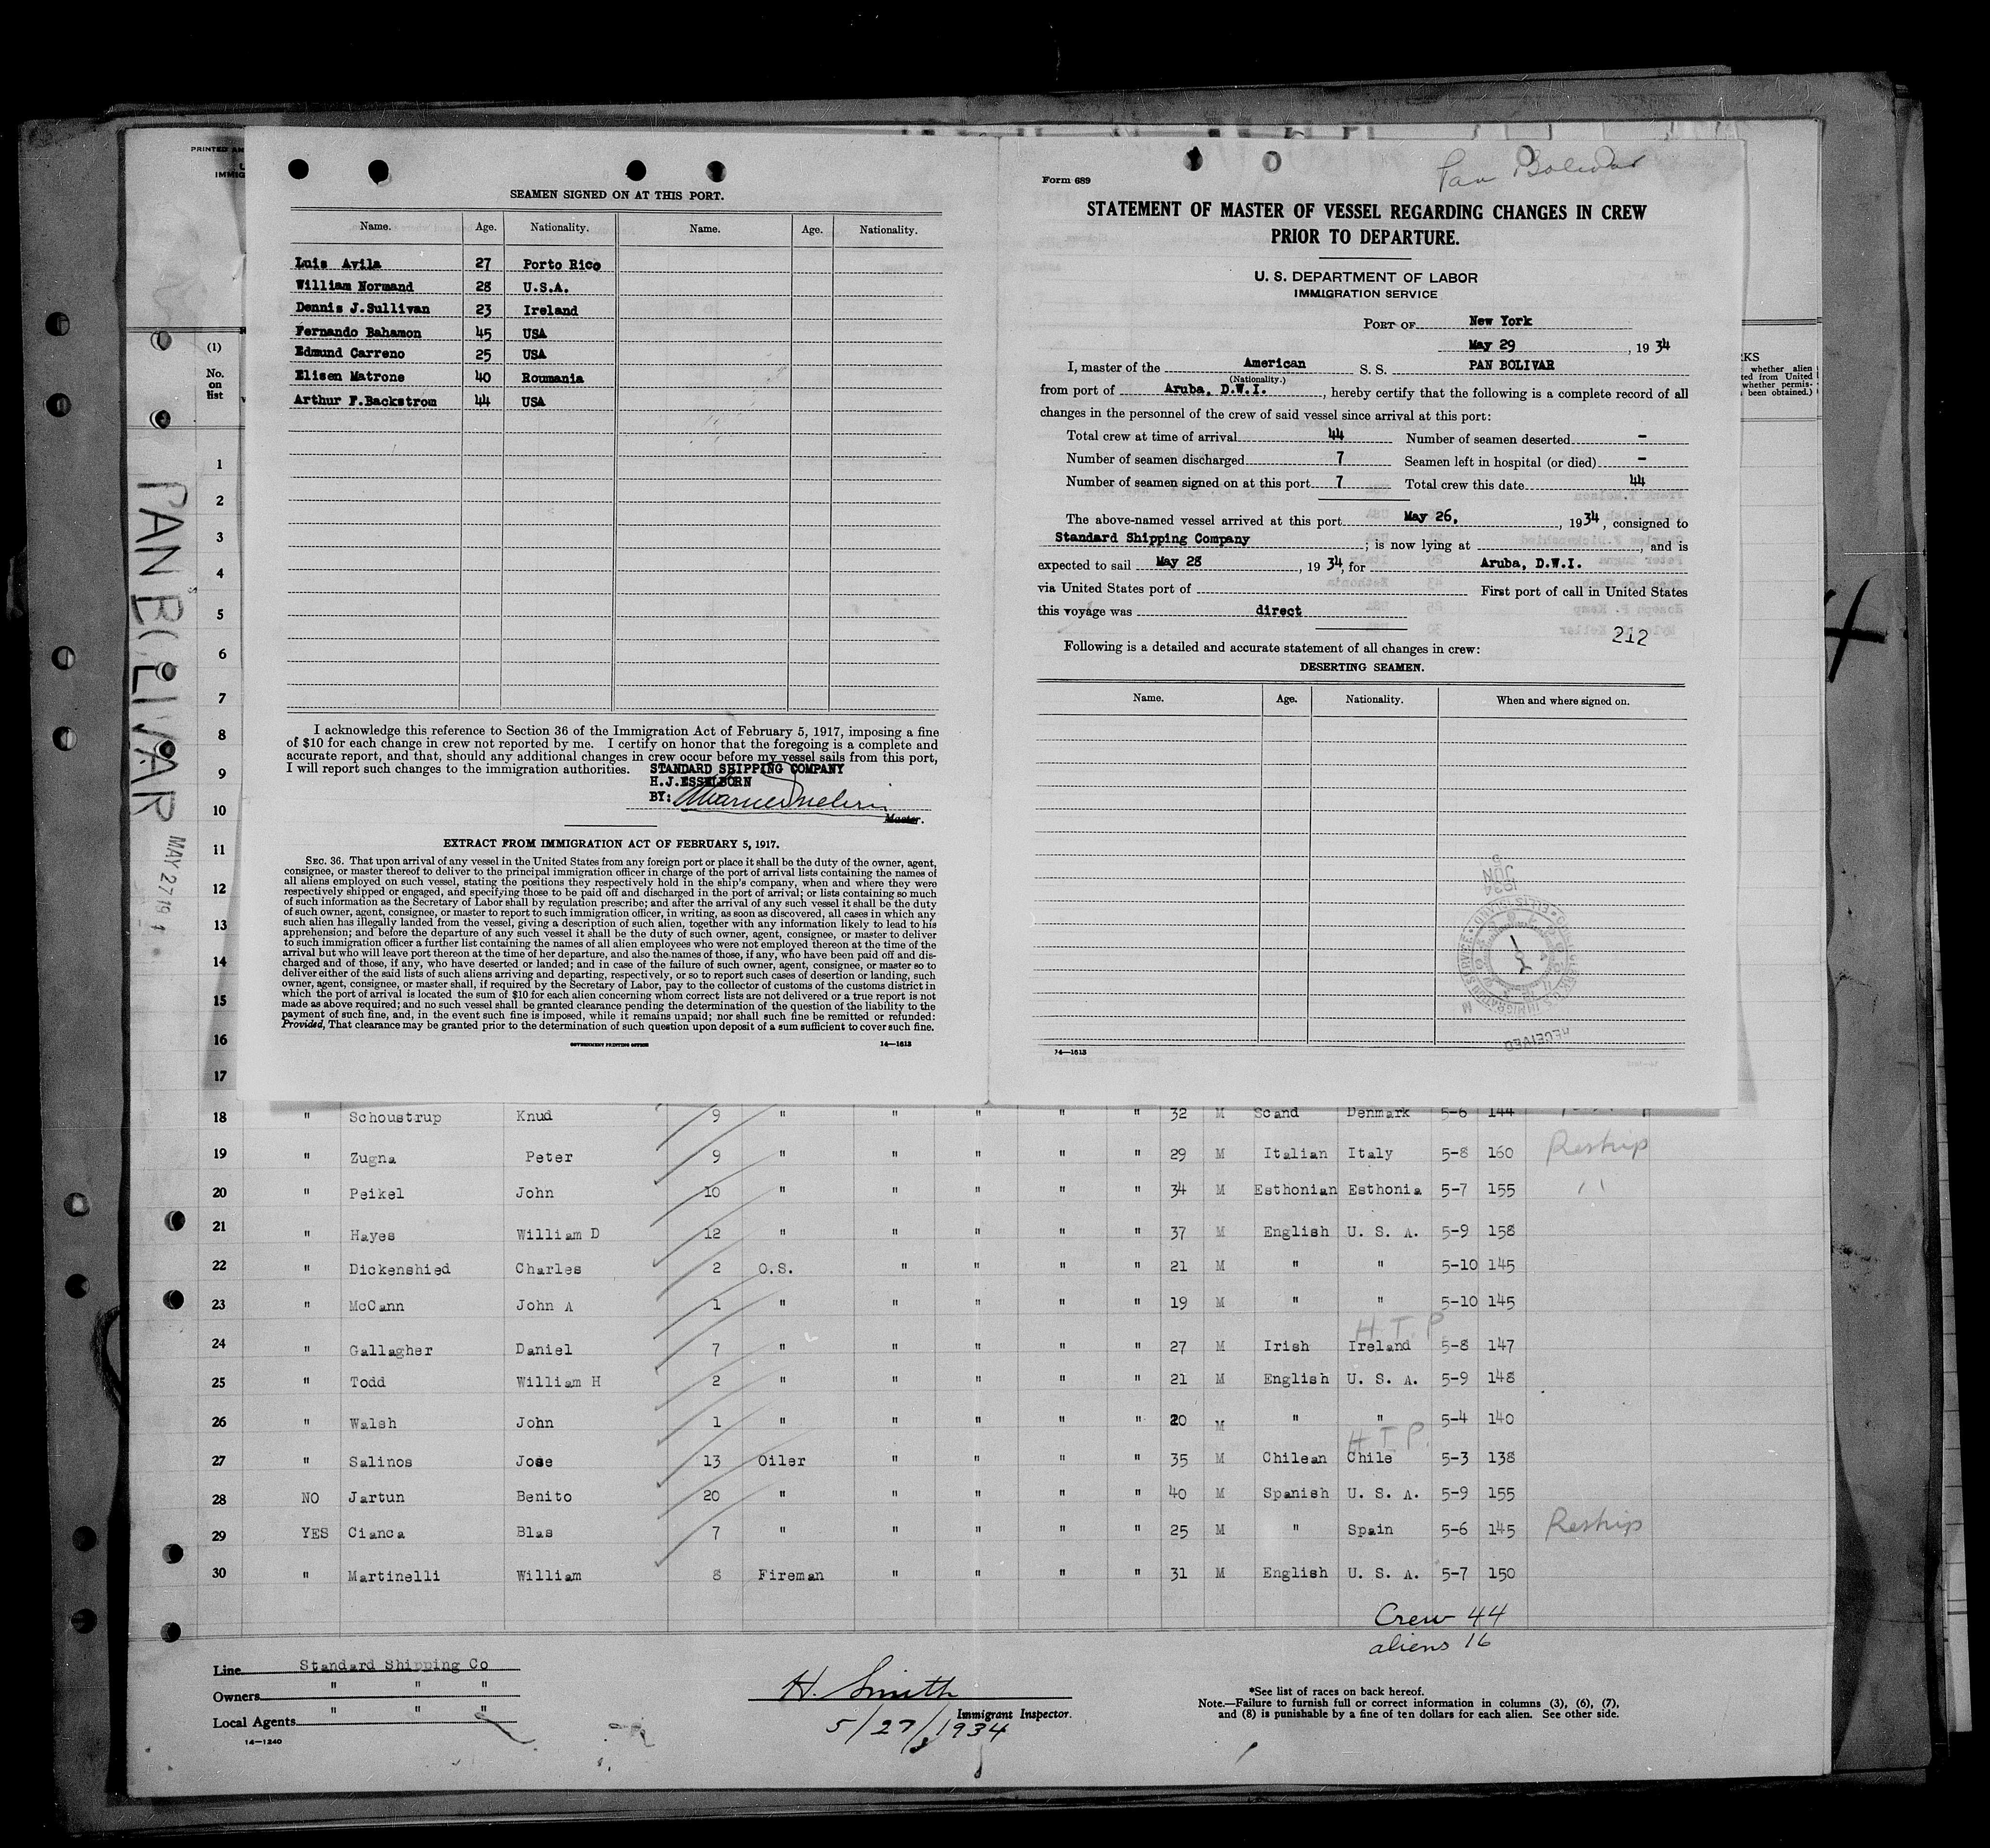 PRINTED
IMMIG
PAN BOLIVAR
MAY 27 19
(1)
No.
on
list
SEAMEN SIGNED ON AT THIS PORT.
Name. Age. Nationality. Name. Age. Nationality.
Luis Avila 27 Porto Rico
William Normand 28 U.S.A.
Dennis J.Sullivan 23 Ireland
Fernando Bahamon 45 USA
Edmund Carreno 25 USA
Elisen Matrone 40 Roumania
Arthur F.Backstrom 44 USA
I acknowledge this reference to Section 36 of the Immigration Act of February 5, 1917, imposing a fine
of $10 for each change in crew not reported by me. I certify on honor that the foregoing is a complete and
accurate report, and that, should any additional changes in crew occur before my vessel sails from this port,
I will report such changes to the immigration authorities. STANDARD SHIPPING COMPANY
H.J.ESSELBORN
BY:
Master.
EXTRACT FROM IMMIGRATION ACT OF FEBRUARY 5, 1917.
SEC. 36. That upon arrival of any vessel in the United States from any foreign port or place it shall be the duty of the owner, agent,
consignee, or master thereof to deliver to the principal immigration officer in charge of the port of arrival lists containing the names of
all aliens employed on such vessel, stating the positions they respectively hold in the ship's company, when and where they were
respectively shipped or engaged, and specifying those to be paid off and discharged in the port of arrival; or lists containing so much
of such information as the Secretary of Labor shall by regulation prescribe; and after the arrival of any such vessel it shall be the duty
of such owner, agent, consignee, or master to report to such immigration officer, in writing, as soon as discovered, all cases in which any
such alien has illegally landed from the vessel, giving a description of such alien, together with any information likely to lead to his
apprehension; and before the departure of any such vessel it shall be the duty of such owner, agent, consignee, or master to deliver
to such immigration officer a further list containing the names of all alien employees who were not employed thereon at the time of the
arrival but who will leave port thereon at the time of her departure, and also the names of those, if any, who have been paid off and dis-
charged and of those, if any, who have deserted or landed; and in case of the failure of such owner, agent, consignee, or master so to
deliver either of the said lists of such aliens arriving and departing, respectively, or so to report such cases of desertion or landing, such
owner, agent, consignee, or master shall, if required by the Secretary of Labor, pay to the collector of customs of the customs district in
which the port of arrival is located the sum of $10 for each alien concerning whom correct lists are not delivered or a true report is not
made as above required; and no such vessel shall be granted clearance pending the determination of the question of the liability to the
payment of such fine, and, in the event such fine is imposed, while it remains unpaid; nor shall such fine be remitted or refunded:
Provided, That clearance may be granted prior to the determination of such question upon deposit of a sum sufficient to cover such fine.
GOVERNMENT PRINTING OFFICE 14—1613
Pan Bolivar
Form 689
STATEMENT OF MASTER OF VESSEL REGARDING CHANGES IN CREW
PRIOR TO DEPARTURE.
U. S. DEPARTMENT OF LABOR
IMMIGRATION SERVICE
PORT OF New York
May 29, 19 34
I, master of the American S. S. PAN BOLIVAR
(Nationality.)
from port of Aruba, D.W.I., hereby certify that the following is a complete record of all
changes in the personnel of the crew of said vessel since arrival at this port:
Total crew at time of arrival 44 Number of seamen deserted -
Number of seamen discharged 7 Seamen left in hospital (or died) -
Number of seamen signed on at this port 7 Total crew this date 44
The above-named vessel arrived at this port May 26, , 1934, consigned to
Standard Shipping Company ; is now lying at , and is
expected to sail May 28 , 19 34, for Aruba, D.W.I.
via United States port of First port of call in United States
this voyage was direct
212
Following is a detailed and accurate statement of all changes in crew:
DESERTING SEAMEN.
Name. Age. Nationality. When and where signed on.
RECEIVED
14—1613
KS
whether alien
ted from United
whether permis-
been obtained.)
1
2
3
4
5
6
7
8
9
10
11
12
13
14
15
16
17
18 " Schoustrup Knud 9 " " " " " 32 M Scand Denmark 5-6 144
19 " Zugna Peter 9 " " " " " 29 M Italian Italy 5-8 160 Reship
20 " Peikel John 10 " " " " " 34 M Esthonian Esthonia 5-7 155 "
21 " Hayes William D 12 " " " " " 37 M English U. S. A. 5-9 158
22 " Dickenshied Charles 2 O.S. " " " " 21 M " " 5-10 145
23 " McCann John A 1 " " " " " 19 M " " 5-10 145
H.T.P.
24 " Gallagher Daniel 7 " " " " " 27 M Irish Ireland 5-8 147
25 " Todd William H 2 " " " " " 21 M English U. S. A. 5-9 148
26 " Walsh John 1 " " " " " 20 M " " 5-4 140
H.T.P.
27 " Salinos Jose 13 Oiler " " " " 35 M Chilean Chile 5-3 138
28 NO Jartun Benito 20 " " " " " 40 M Spanish U. S. A. 5-9 155
29 YES Cianca Blas 7 " " " " " 25 M " Spain 5-6 145 Reship
30 " Martinelli William 8 Fireman " " " " 31 M English U. S. A. 5-7 150
Crew 44
aliens 16
Line Standard Shipping Co
Owners " " "
Local Agents " " "
14—1240
H. Smith
Immigrant Inspector.
5/27/1934
*See list of races on back hereof.
Note.—Failure to furnish full or correct information in columns (3), (6), (7),
and (8) is punishable by a fine of ten dollars for each alien. See other side.